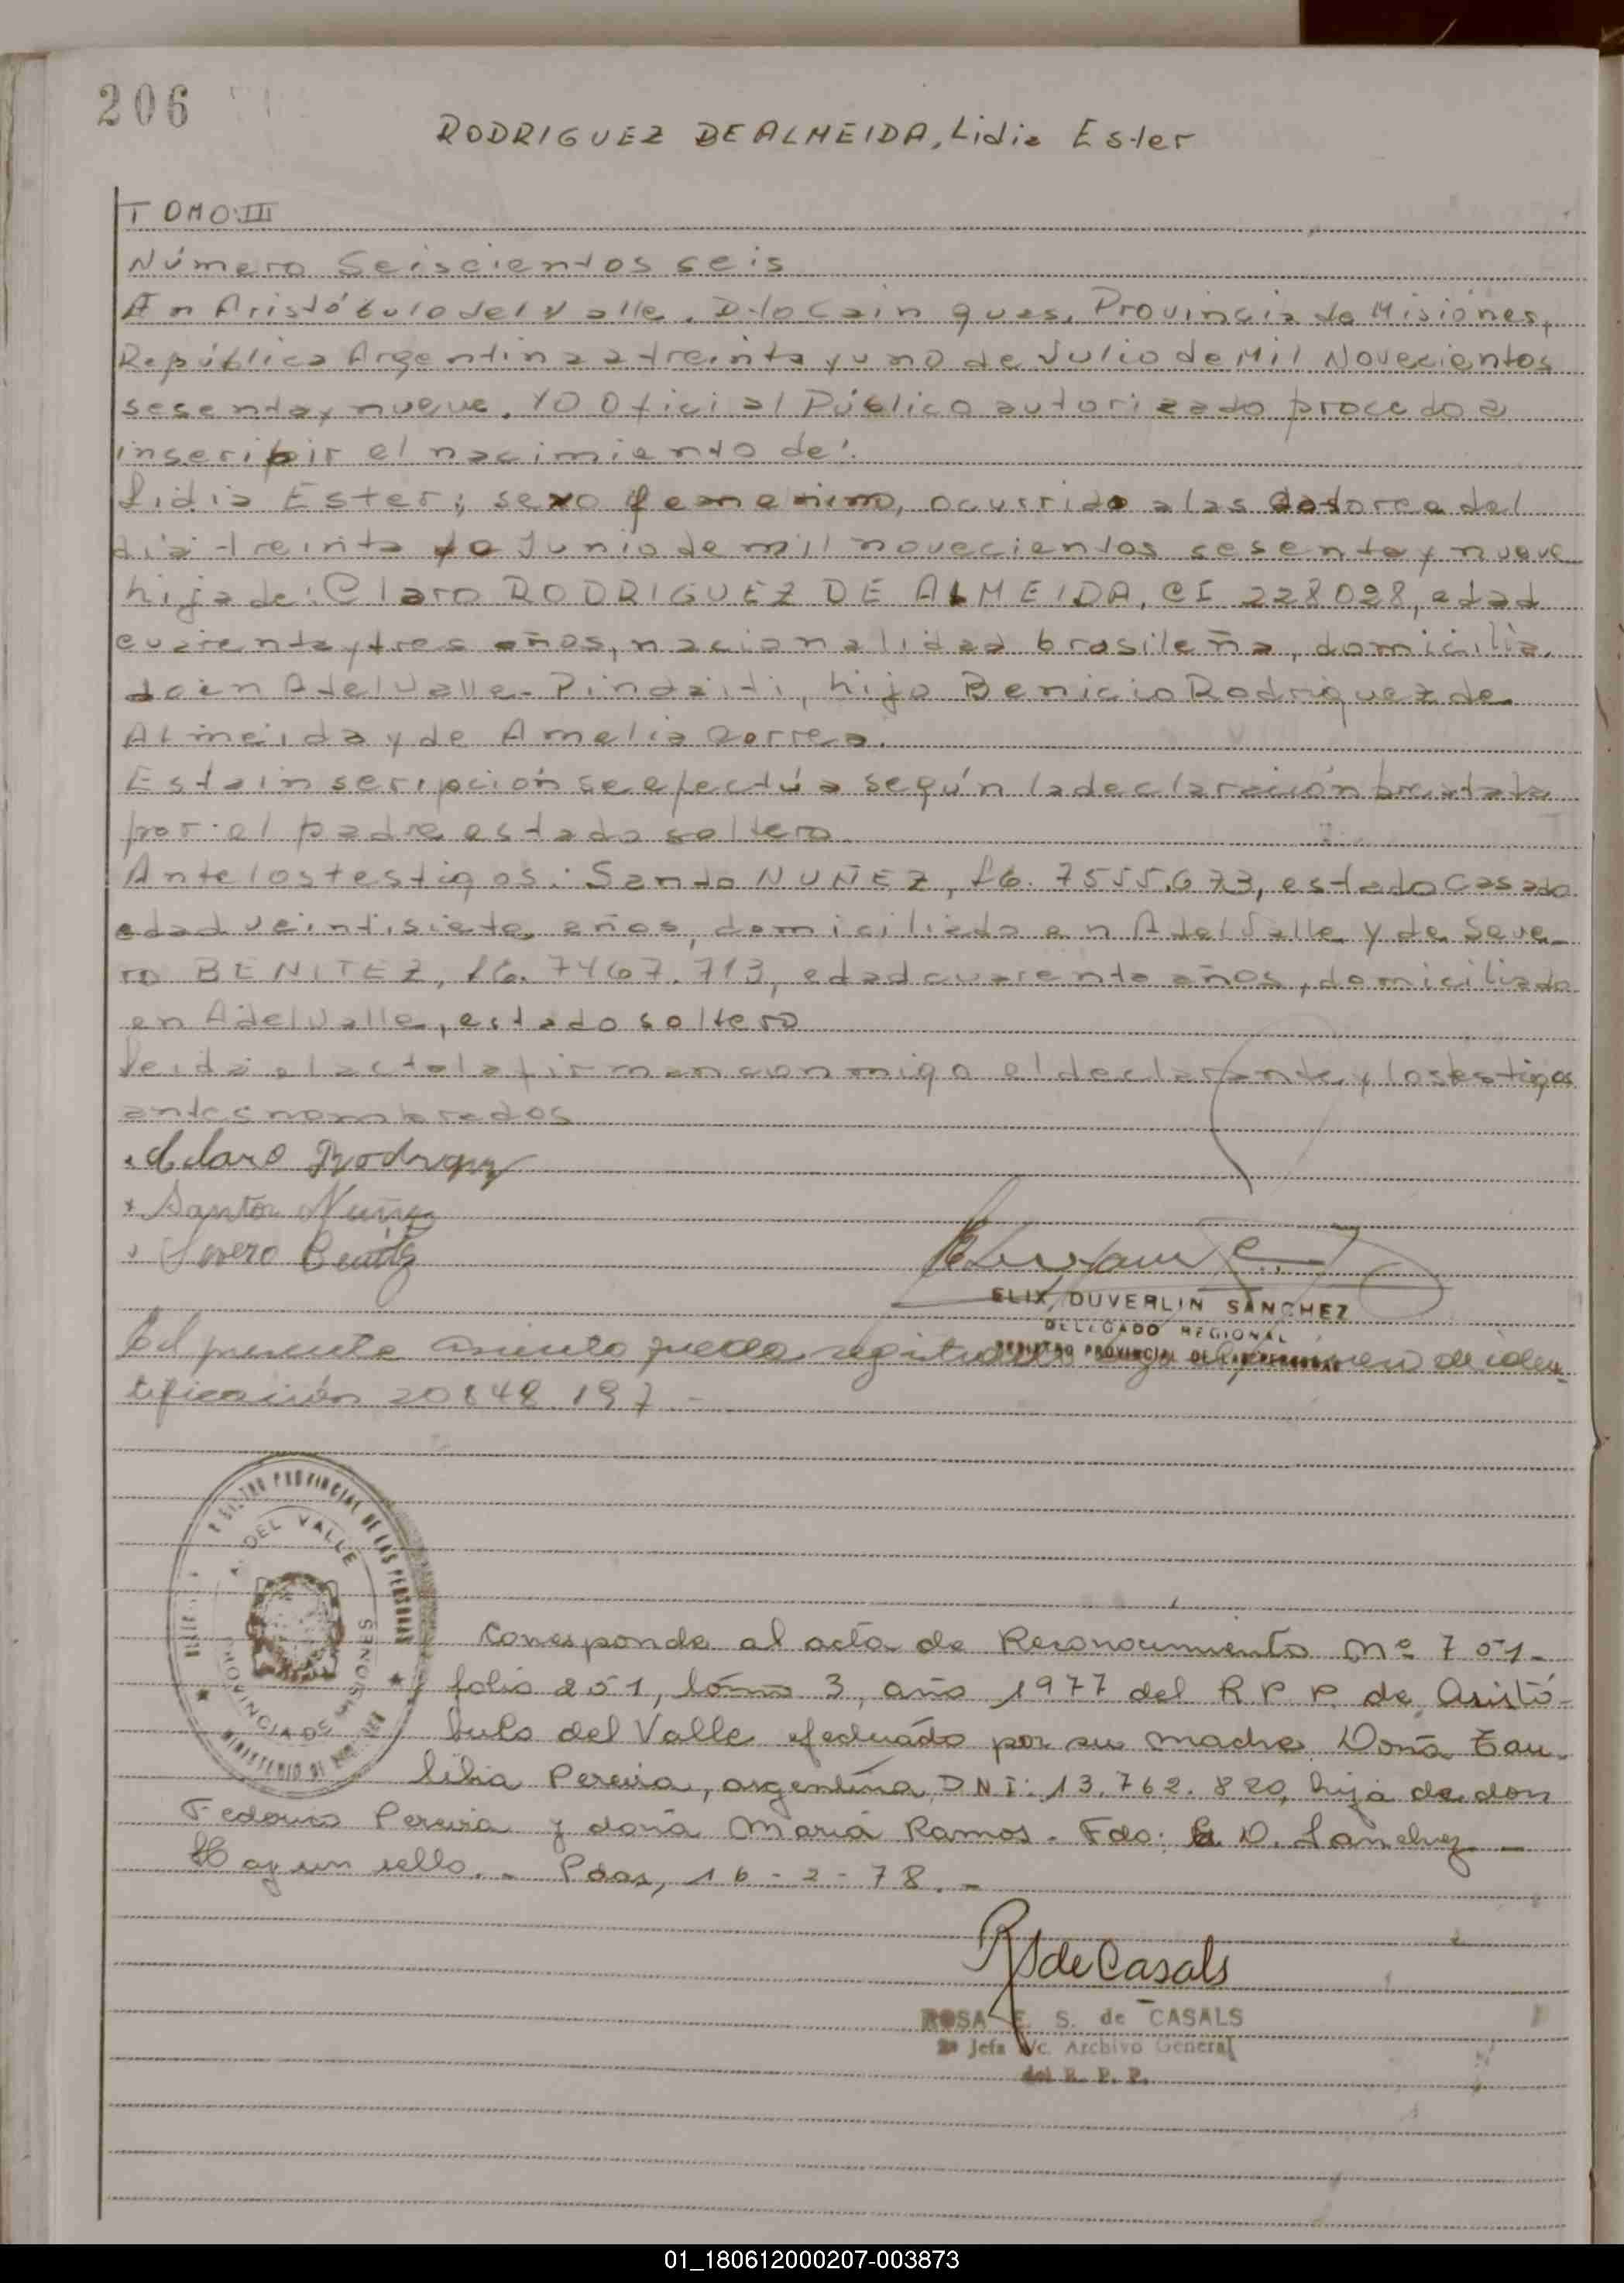 206
RODRIGUEZ DE ALMEIDA, Lidia Ester
TOMO:III
Número Seiscientos seis
En Aristóbulo del Valle, Dto Cainguas, Provincia de Misiónes,
República Argentina a treinta y uno de Julio de Mil Novecientos
sesenta y nueve. YO Oficial Público autorizado procedo a
inscribir el nacimiento de:
Lidia Ester; sexo femenino, ocurrido a las catorce del
dia treinta de Junio de mil novecientos sesenta y nueve
hija de: Claro RODRIGUEZ DE ALMEIDA, CI 228028, edad
cuarenta y tres años, nacionalidad brasileña, domicilia.
do en A del Valle - Pindaiti, hijo Benicio Rodriguez de
Almeida y de Amelia Correa.
Esta inscripción se efectúa según la declaración prestada
por el padre estado soltero
Ante los testigos: Santo NUÑEZ, LE. 7555.673, estado Casado
edad veintisiete años, domiciliado en A del Valle y de Seve-
ro BENITEZ, LE. 7467.713, edad cuarenta años, domiciliado
en A del Valle, estado soltero
Leida el acta la firman conmigo el declarante y los testigos
antes nombrados
Claro Rodriguez
Santos Nuñez
Severo Benitez
ELIX DUVERLIN SANCHEZ
DELEGADO REGIONAL
REGISTRO PROVINCIAL DE LAS PERSONAS
El presente asiento queda registrado bajo el número de iden-
tificación 20848.197.-
REGISTRO PROVINCIAL DE LAS PERSONAS
A. DEL VALLE
PROVINCIA DE MISIONES
MINISTERIO DE
Corresponde al acta de Reconocimiento Nº 701-
folio 201, tomo 3, año 1977 del R P P. de Aristó-
bulo del Valle efectuado por su madre Doña Eau-
libia Pereira, argentina, D.N.I: 13.762.820, hija de don
Federico Pereira y doña Maria Ramos. Fdo: E D. Sanchez -
Hay un sello. - Pdas, 16-2-78. -
RS de Casals
ROSA E. S. de CASALS
2ª Jefa A/c. Archivo General
del R. P. P.
01_180612000207-003873